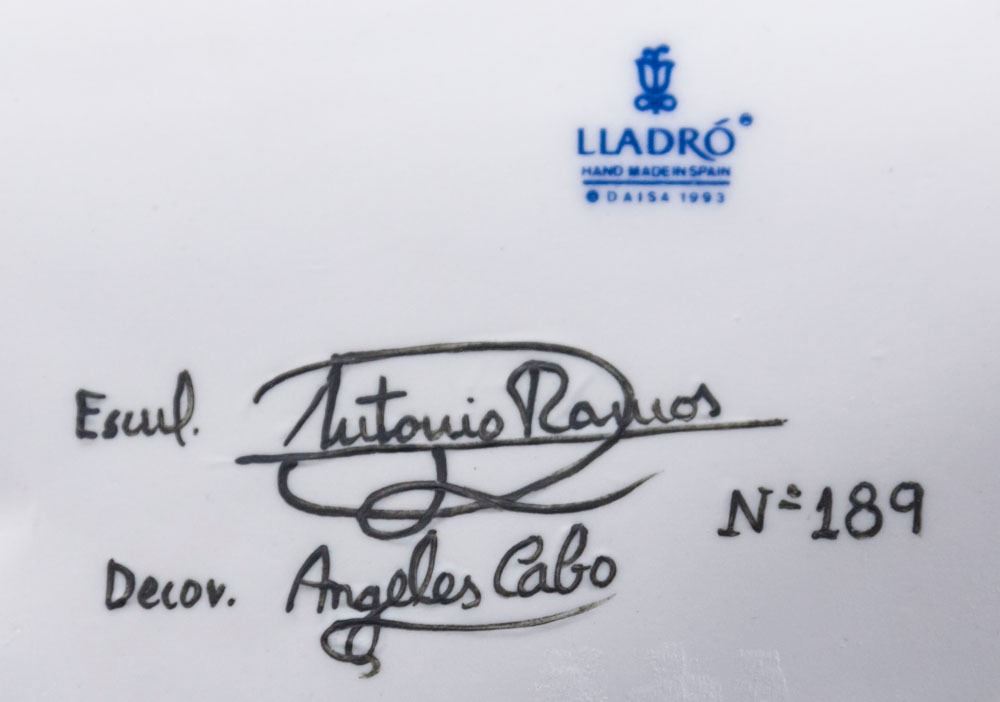 LLADRÓ
HAND MADE IN SPAIN
© DAISA 1993
Escul. Antonio Ramos
Nº 189
Decor. Angeles Cabo